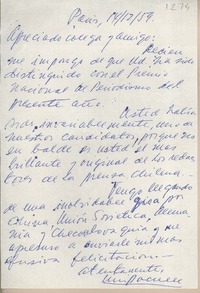 1274
París, 14/12/59.
Apreciado colega y amigo:
Recien
me impongo de que Ud. ha sido
distinguido con el Premio
Nacional de Periodismo del
presente año.
Usted había
sido, invariablemente, uno de
nuestros candidatos, porque no
en balde es usted el mas
brillante y original de los redac
tores de la prensa chilena.
Vengo llegando
de una inolvidable gira por
China, Unión Soviética, Alema
nia y Checoslovaquia y me
apresuro a enviarle mi mas
efusiva felicitacion.—
Atentamente,